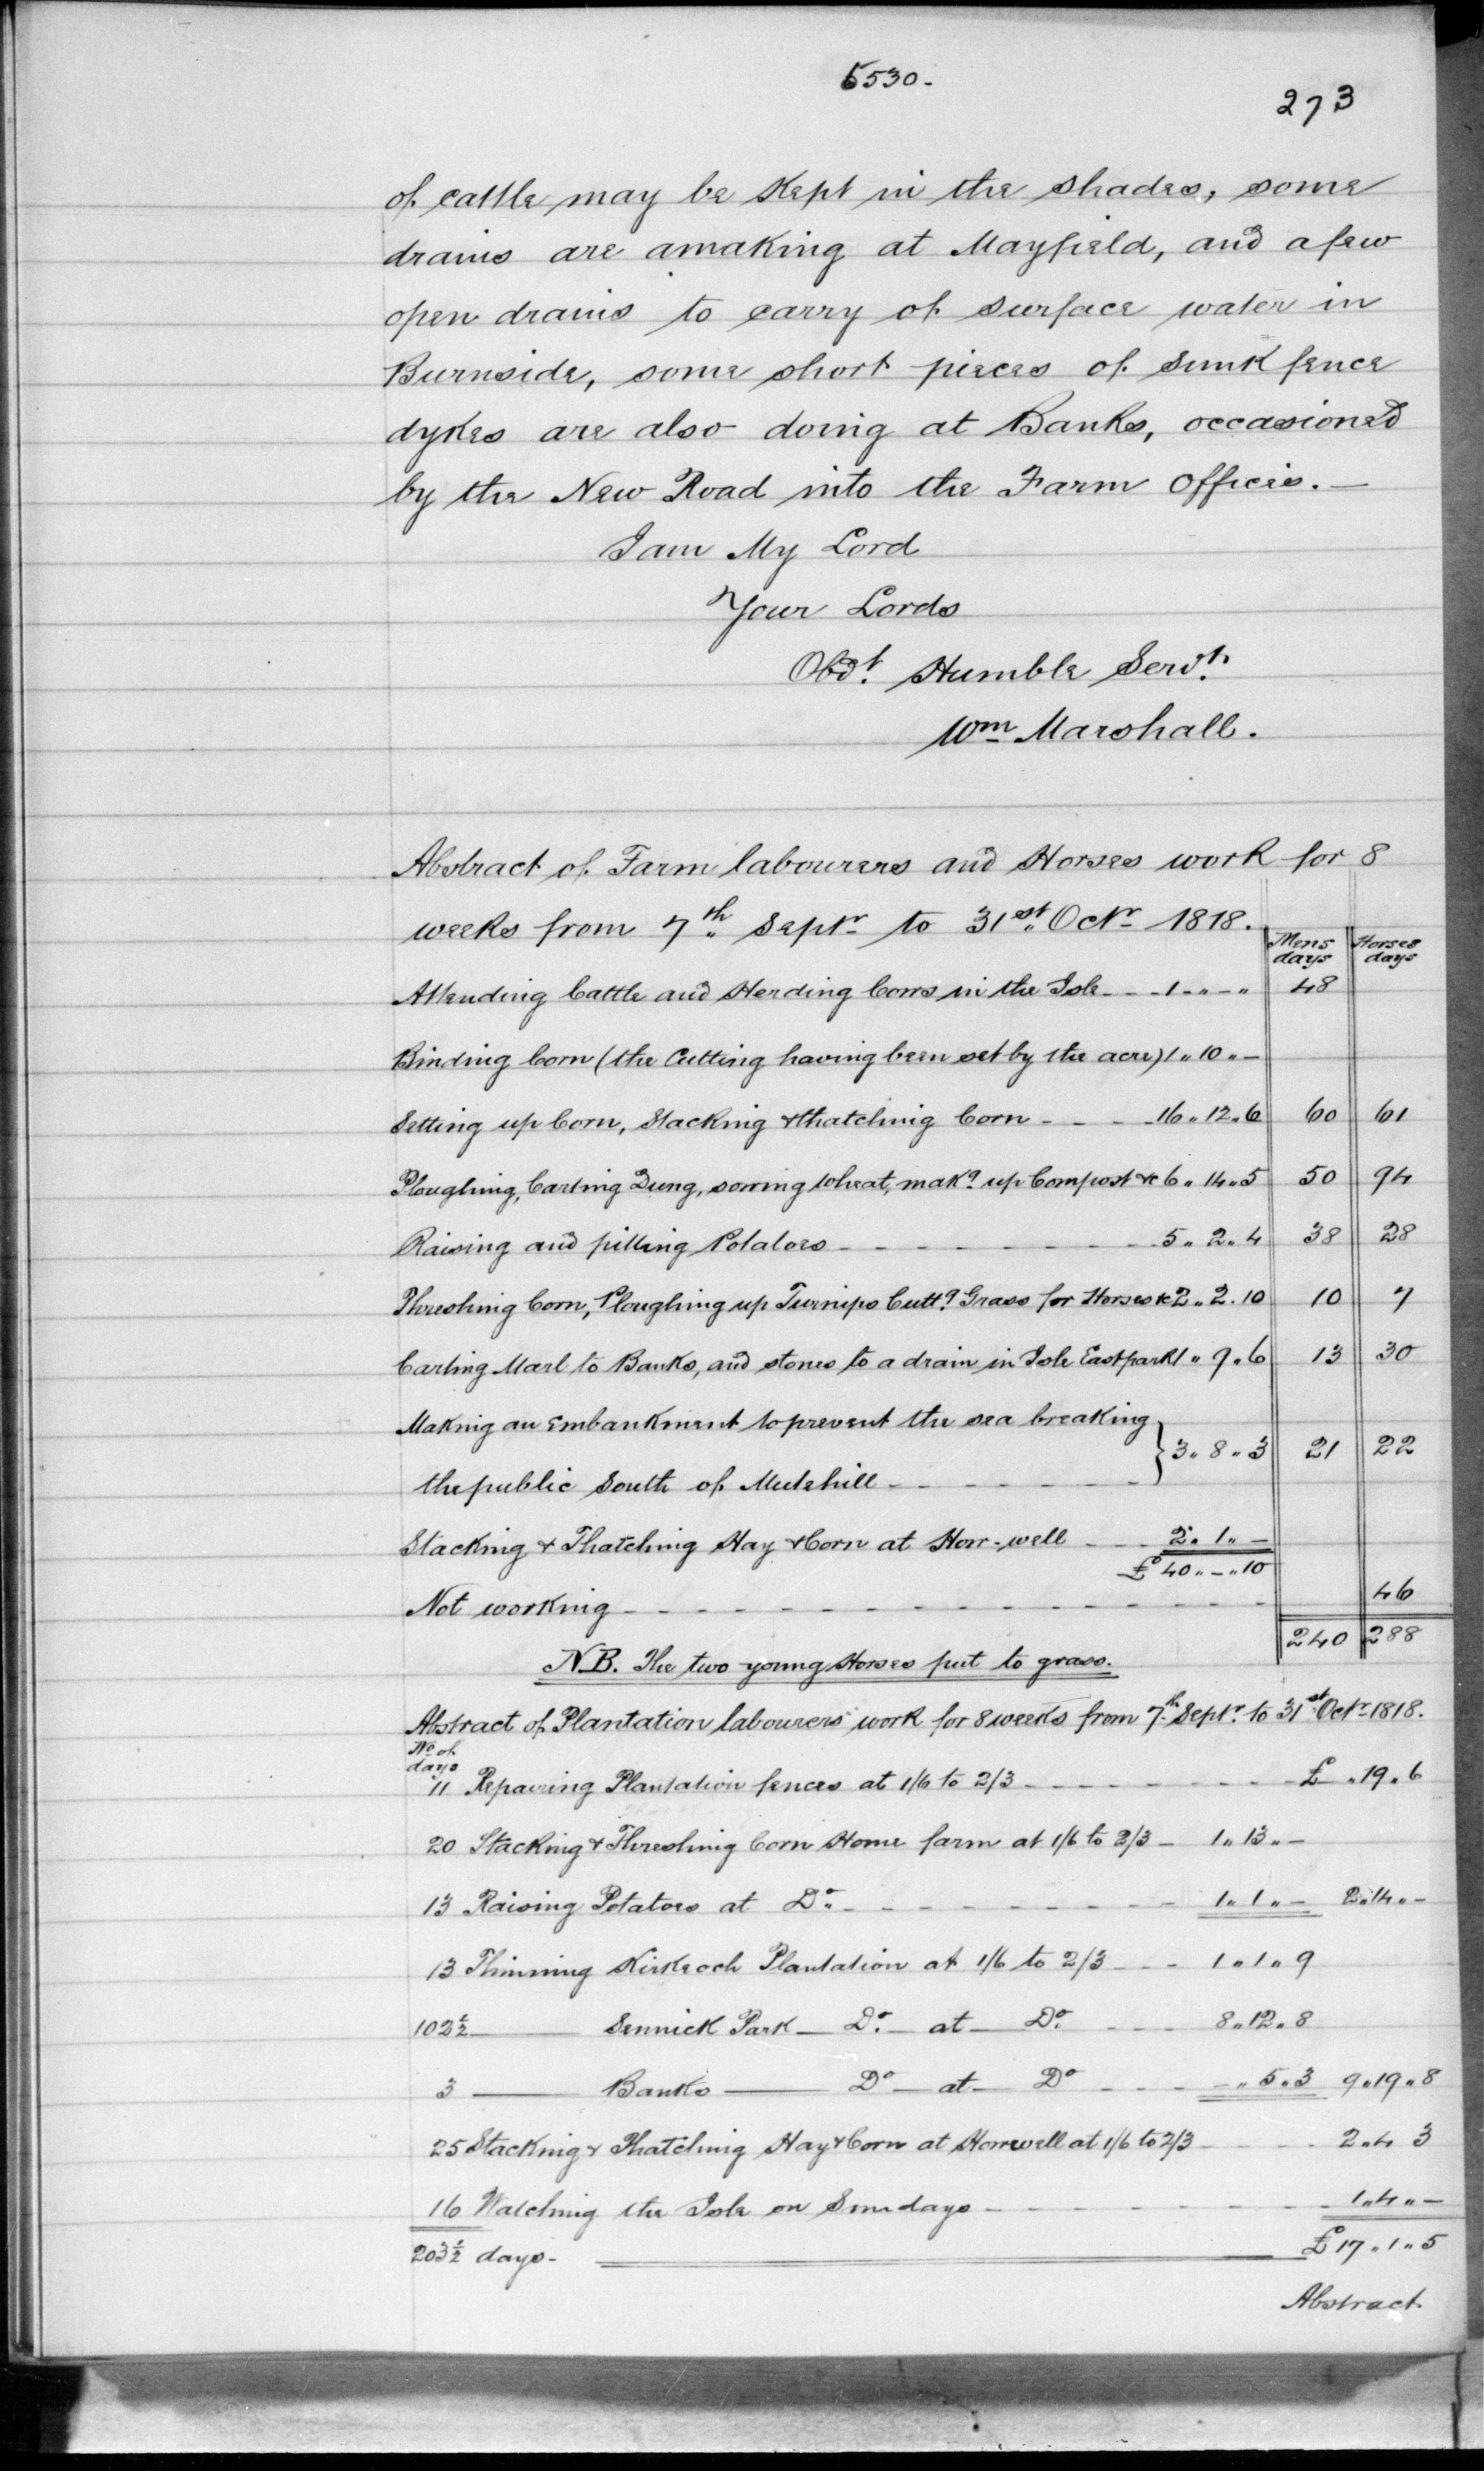 5530.
273
of cattle may be Kept in the shades, some
drains are amaking at Mayfield, and a few
open drains to carry of surface water in
Burnside, some short pieces of sunk fence
dykes are also doing at Banks, occasioned
by the New Road into the Farm Offices. —
I am My Lord
Your Lords
Obdt. Humble Servt.
Wm Marshall.
Abstract of Farm labourers and Horses work for 8
weeks from 7th Septr to 31st Octr 1818.
Mens days Horses days
Attending Cattle and Herding Cows in the Isle - - - 1 „ - „ 48
Binding Corn (the Cutting having been set by the acre) 1 „ 10 „ -
Setting up Corn, Stacking & thatching Corn - - - - 16 „ 12 „ 6 60 61
Ploughing, Carting Dung, sowing Wheat, makg up Compost &c 6 „ 14 „ 5 50 94
Raising and pitting Potatoes - - - - - - - 5 „ 2 „ 4 38 28
Threshing Corn, Ploughing up Turnips Cuttg Grass for Horses &c 2 „ 2 . 10 10 7
Carting Marl to Banks, and stones to a drain in Isle Eastpark 1 „ 9 „ 6 13 30
Making an Embankment to prevent the sea breaking
the public South of Mutehill - - - - - - } 3 „ 8 „ 3 21 22
Stacking & Thatching Hay & Corn at Horr-well - - - 2 „ 1 „ -
£ 40 „ - „ 10
Not working - - - - - - - - - - - - 46
240 288
N.B. The two young Horses put to grass.
Abstract of Plantation labourers work for 8 weeks from 7th Septr. to 31st Octr 1818.
No of
days
11 Repairing Plantation fences at 1/6 to 2/3 - - - - - - - - £ „ 19 „ 6
20 Stacking & Threshing Corn Home farm at 1/6 to 2/3 - 1 „ 13 „ -
13 Raising Potatoes at Do. - - - - - - - - - 1 „ 1 „ - 2 „ 14 „ -
13 Thinning Kirkeoch Plantation at 1/6 to 2/3 - - - 1 „ 1 „ 9
102½ —— Sennick Park — Do. — at — Do. - - - 8 „ 12 „ 8
3 —— Banks —— Do — at — Do - - - - „ 5 „ 3 9 „ 19 „ 8
25 Stacking & Thatching Hay & Corn at Horrwell at 1/6 to 2/3 - - - - 2 „ 4 3
16 Watching the Isle on Sundays - - - - - - - - 1 „ 4 „ -
203½ days - £ 17 „ 1 „ 5
Abstract